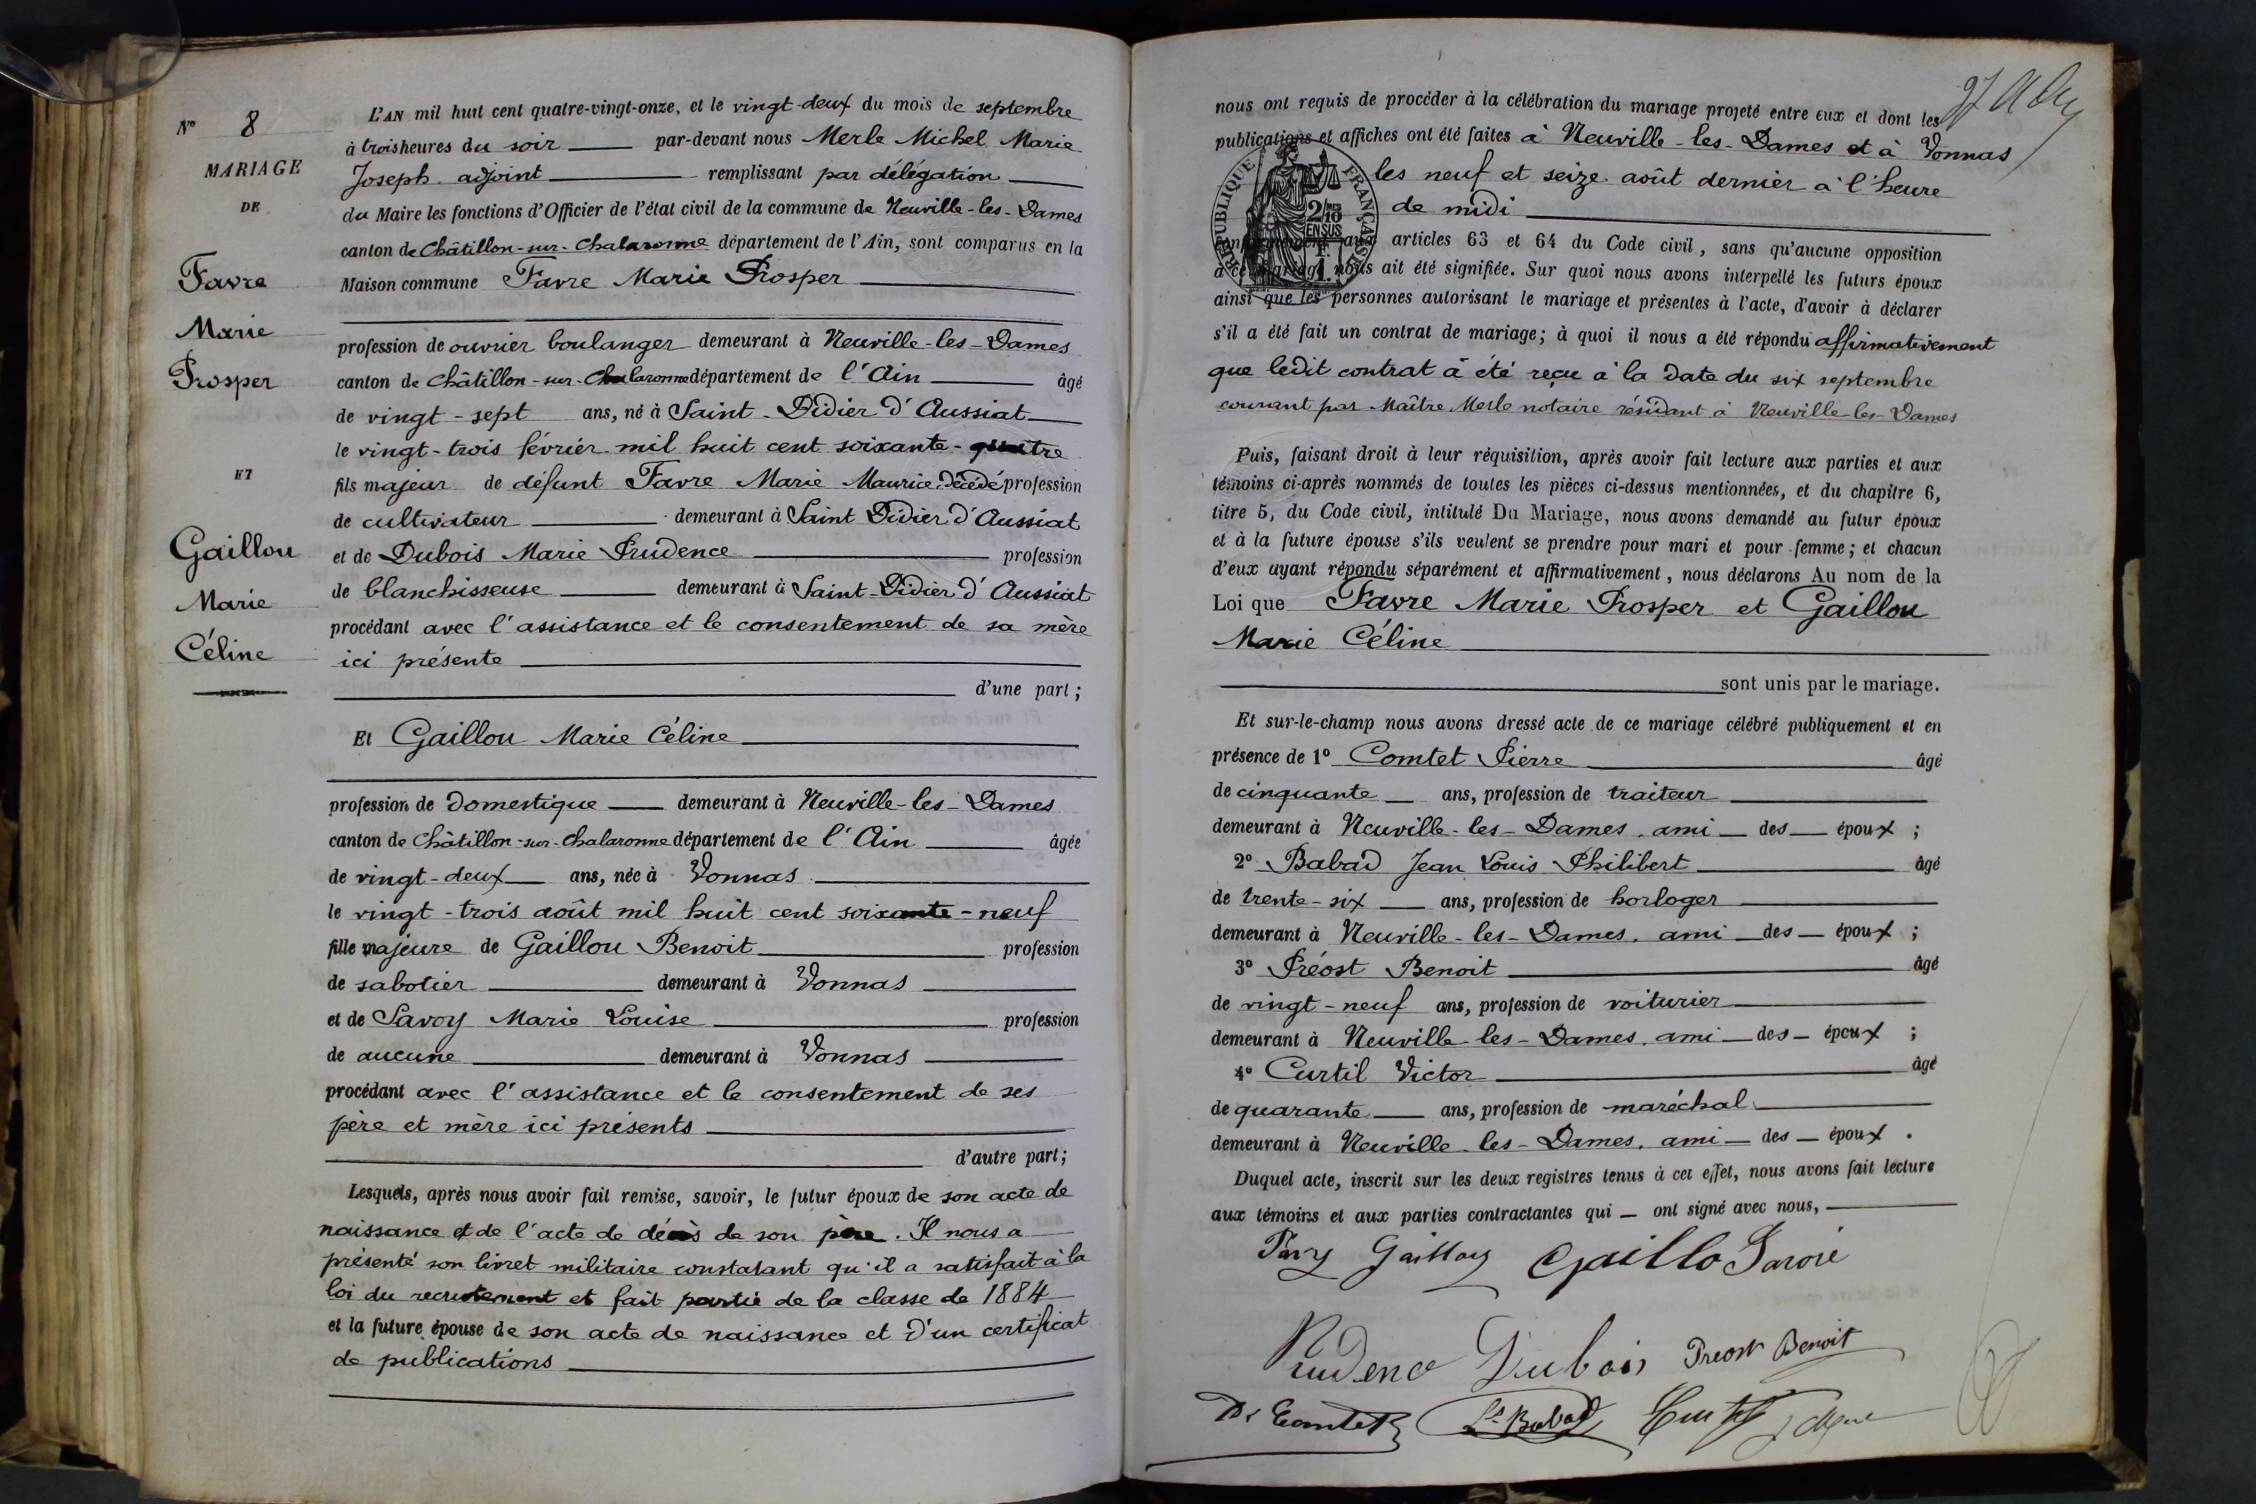 N° 8
MARIAGE
DE
Favre
Marie
Prosper
ET
Gaillou
Marie
Céline
L'AN mil huit cent quatre-vingt-onze, et le vingt-deux du mois de septembre
à trois heures du soir par-devant nous Merle Michel Marie
Joseph adjoint remplissant par délégation
du Maire les fonctions d'Officier de l'état civil de la commune de Neuville-les-Dames
canton de Châtillon-sur-Chalaronne département de l'Ain, sont comparus en la
Maison commune Favre Marie Prosper
profession de ouvrier boulanger demeurant à Neuville-les-Dames
canton de Châtillon-sur-Chalaronne département de l'Ain âgé
de vingt-sept ans, né à Saint-Didier d'Aussiat
le vingt-trois février mil huit cent soixante-quatre
fils majeur de défunt Favre Marie Maurice décédé profession
de cultivateur demeurant à Saint Didier d'Aussiat
et de Dubois Marie Prudence profession
de blanchisseuse demeurant à Saint-Didier d'Aussiat
procédant avec l'assistance et le consentement de sa mère
ici présente
d'une part;
Et Gaillou Marie Céline
profession de domestique demeurant à Neuville-les-Dames
canton de Châtillon-sur-Chalaronne département de l'Ain âgée
de vingt-deux ans, née à Vonnas
le vingt-trois août mil huit cent soixante-neuf
fille majeure de Gaillou Benoit profession
de sabotier demeurant à Vonnas
et de Savoy Marie Louise profession
de aucune demeurant à Vonnas
procédant avec l'assistance et le consentement de ses
père et mère ici présents
d'autre part;
Lesquels, après nous avoir fait remise, savoir, le futur époux de son acte de
naissance et de l'acte de décès de son père. Il nous a
présenté son livret militaire constatant qu'il a satisfait à la
loi du recrutement et fait partie de la classe de 1884
et la future épouse de son acte de naissance et d'un certificat
de publications
nous ont requis de procéder à la célébration du mariage projeté entre eux et dont les
publications et affiches ont été faites à Neuville-les-Dames et à Vonnas
les neuf et seize août dernier à l'heure
de midi
RÉPUBLIQUE FRANÇAISE
2/10
EN SUS
conformément aux articles 63 et 64 du Code civil, sans qu'aucune opposition
à ce mariage nous ait été signifiée. Sur quoi nous avons interpellé les futurs époux
ainsi que les personnes autorisant le mariage et présentes à l'acte, d'avoir à déclarer
s'il a été fait un contrat de mariage; à quoi il nous a été répondu affirmativement
que ledit contrat a été reçu à la date du six septembre
courant par Maître Merle notaire résidant à Neuville-les-Dames
Puis, faisant droit à leur réquisition, après avoir fait lecture aux parties et aux
témoins ci-après nommés de toutes les pièces ci-dessus mentionnées, et du chapitre 6,
titre 5, du Code civil, intitulé Du Mariage, nous avons demandé au futur époux
et à la future épouse s'ils veulent se prendre pour mari et pour femme; et chacun
d'eux ayant répondu séparément et affirmativement, nous déclarons Au nom de la
Loi que Favre Marie Prosper et Gaillou
Marie Céline
sont unis par le mariage.
Et sur-le-champ nous avons dressé acte de ce mariage célébré publiquement et en
présence de 1° Comtet Pierre âgé
de cinquante ans, profession de traiteur
demeurant à Neuville-les-Dames, ami des époux;
2° Babad Jean Louis Philibert âgé
de trente-six ans, profession de horloger
demeurant à Neuville-les-Dames, ami des époux;
3° Préost Benoit âgé
de vingt-neuf ans, profession de voiturier
demeurant à Neuville-les-Dames, ami des époux;
4° Curtil Victor âgé
de quarante ans, profession de maréchal
demeurant à Neuville-les-Dames, ami des époux.
Duquel acte, inscrit sur les deux registres tenus à cet effet, nous avons fait lecture
aux témoins et aux parties contractantes qui ont signé avec nous,
Gaillo
Prudence Dubois Préost Benoit
Comtet Ls Babad Curtil